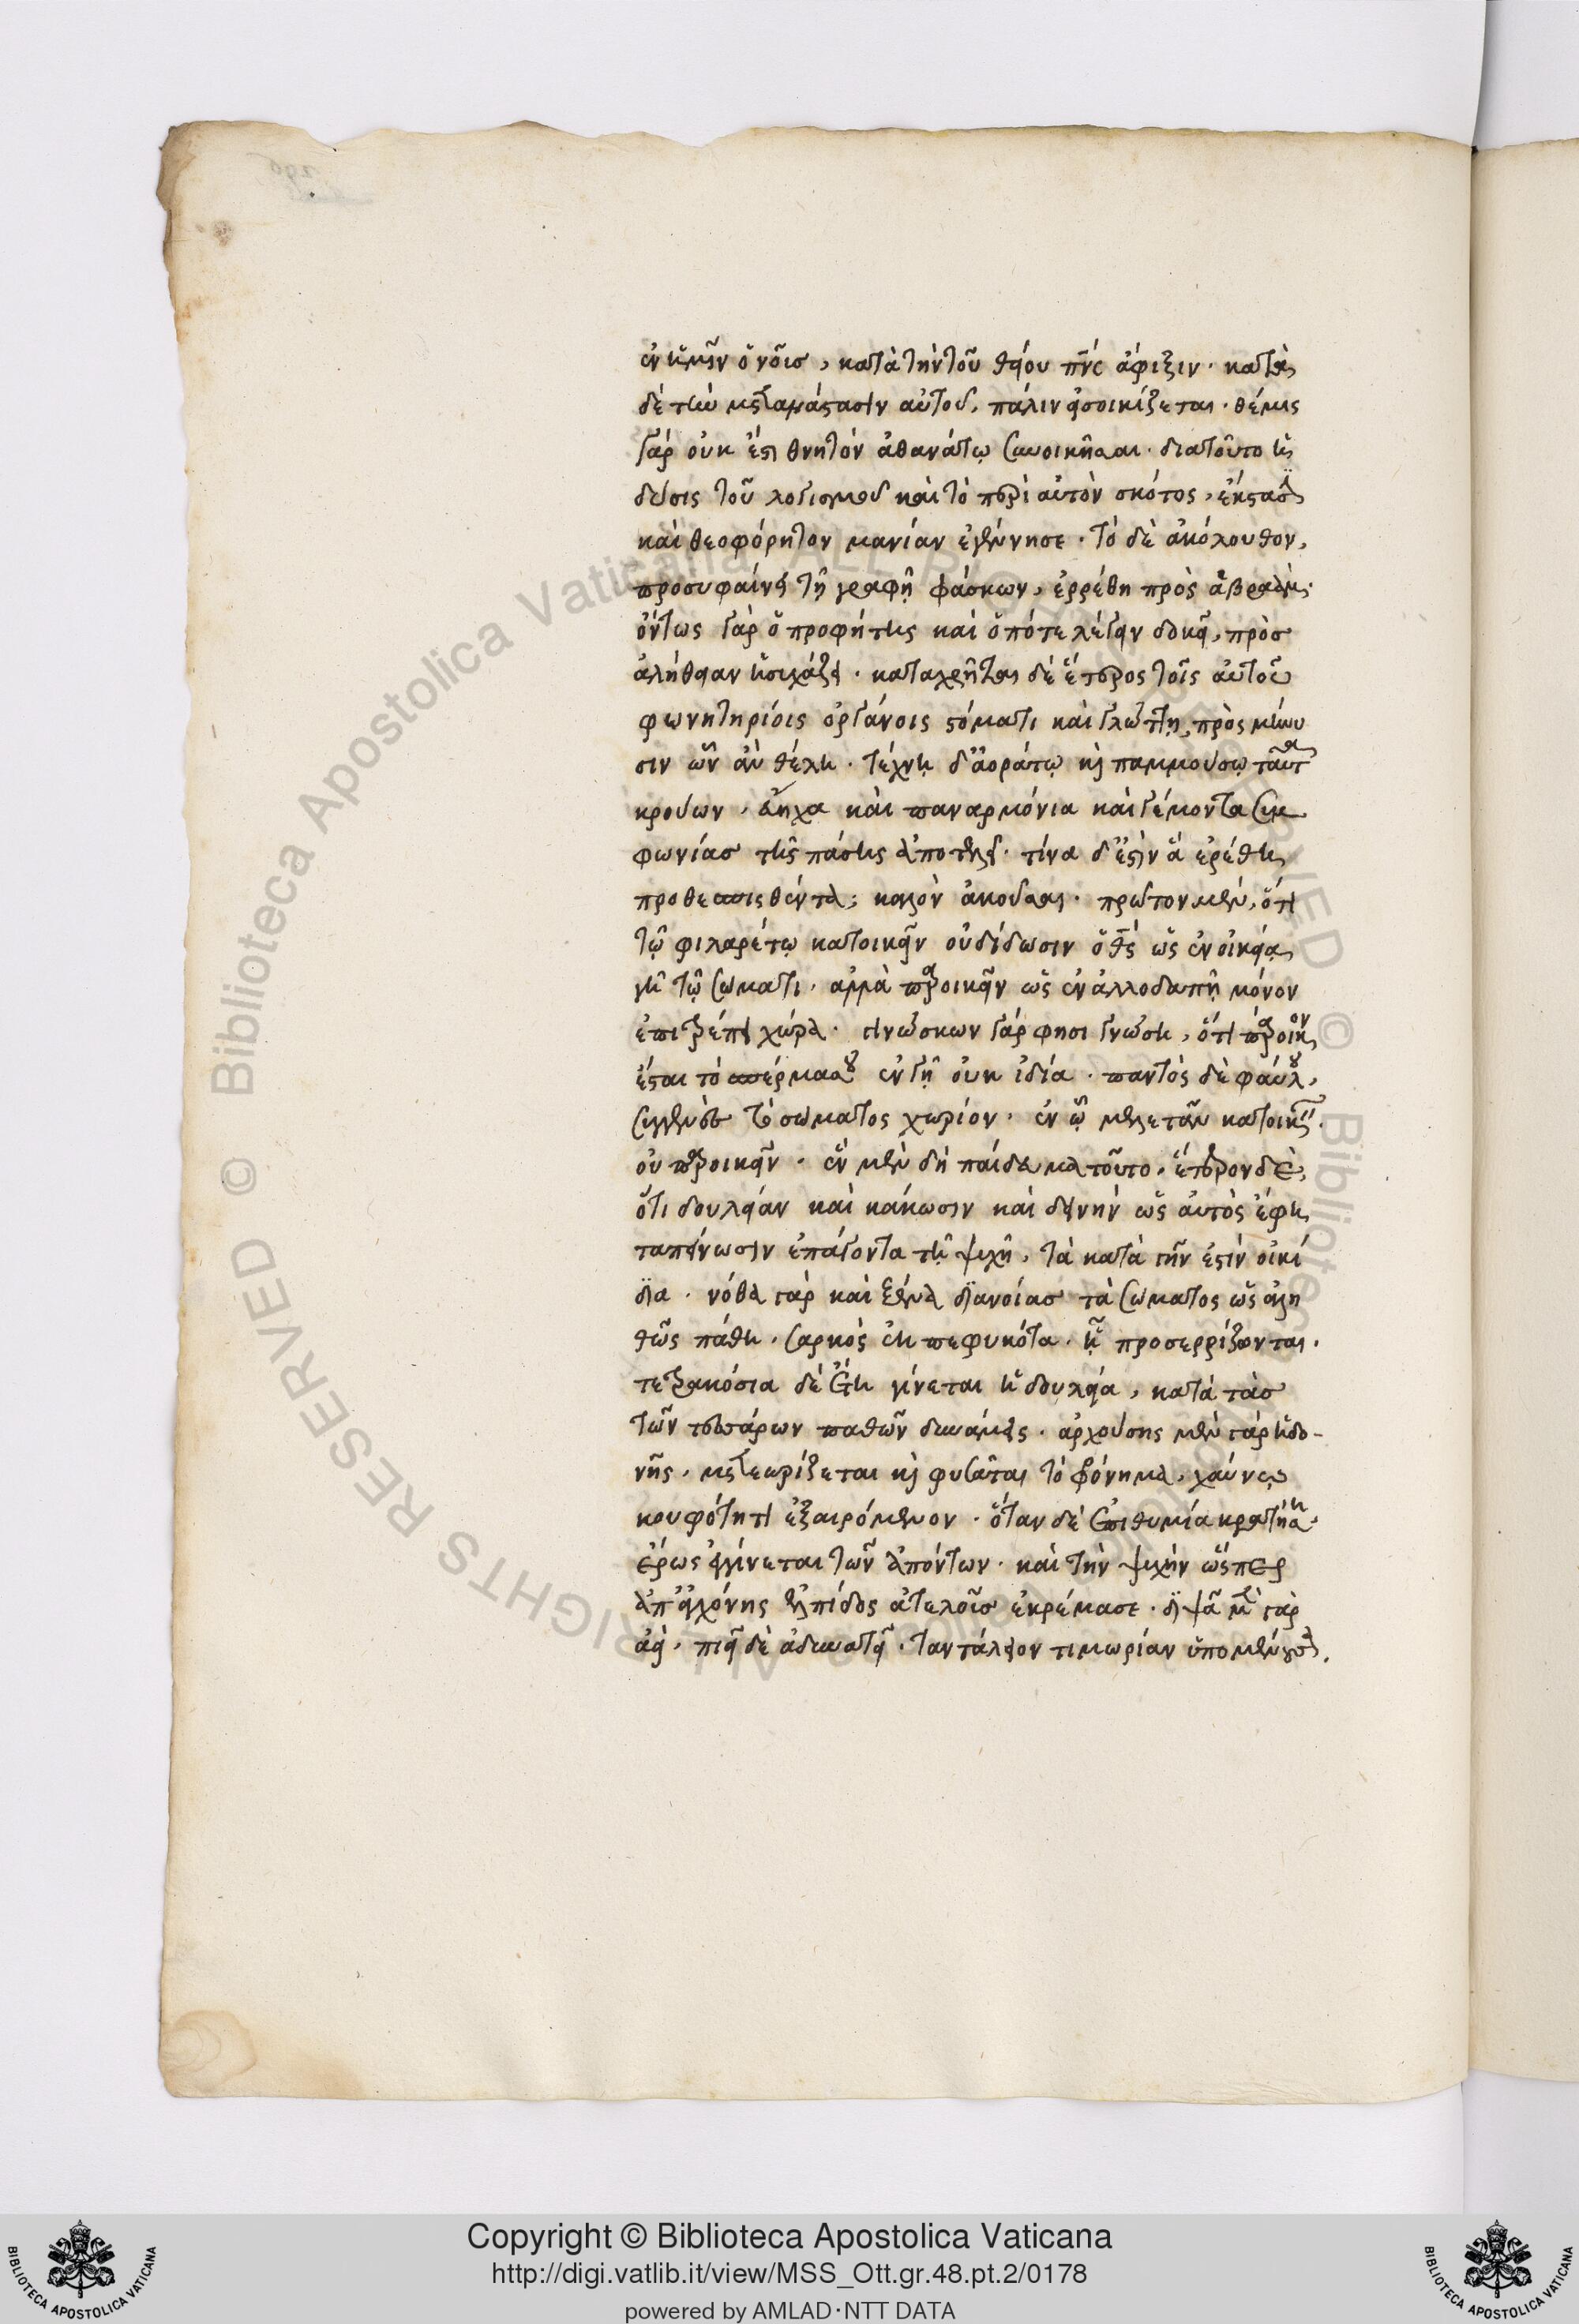 ἐν ἡμῖν ὁ νοῦσ, κατὰ τὴν τοῦ θείου πνς ἄφιξιν. κατὰ
δὲ τὴν μετανάστασιν αὐτοῦ, πάλιν εἰσοικίζεται. θέμις
γὰρ οὐκ ἔστι θνητὸν ἀθανάτῳ συνοικῆσαι. διατοῦτο ἡ
δύσις τοῦ λογισμοῦ καὶ τὸ περὶ αὐτὸν σκότος, ἔκστασιν
καὶ θεοφόρητον μανίαν ἐγέννησε. τὸ δὲ ἀκόλουθον,
προσυφαίνει τῇ γραφῇ φάσκων, ἐρρέθη πρὸς ἀβραάμ.
ὄντως γὰρ ὁ προφήτης καὶ ὁπότε λέγειν δοκεῖ, πρὸσ
ἀλήθειαν ἡσυχάζει. καταχρῆται δὲ ἕτερος τοῖς αὐτοῦ
φωνητηρίοις ὀργάνοις στόματι καὶ γλώττῃ, πρὸς μήνυ
σιν ὧν ἂν θέλῃ. τέχνῃ δ' ἀοράτῳ κὶ παμμούσῳ ταῦτα
κρούων, εὔηχα καὶ παναρμόνια καὶ γέμοντα συμ
φωνίασ τῆς πάσης ἀποτελεῖ. τίνα δ' ἐστὶν ἃ ἐρέθη
προθεσπισθέντα; καλὸν ἀκοῦσαι. πρῶτον μὲν, ὅτι
τῷ φιλαρέτῳ κατοικεῖν οὐ δίδωσιν ὁ θς ὡς ἐν οἰκείᾳ
γῇ τῷ σώματι. ἀλλὰ παροικεῖν ὡς ἐν ἀλλοδαπῇ μόνον
ἐπιτρέπει χώρα. γινώσκων γάρ φησι γνώσῃ, ὅτι πάροικον
ἔσται τὸ σπέρμα σοῦ ἐν γῇ οὐκ ἰδία. παντὸς δὲ φαύλου,
συγγενὲς τὸ σώματος χωρίον. ἐν ᾧ μελετᾶν κατοικεῖν.
οὐ παροικεῖν. ἓν μὲν δὴ παίδευμα τοῦτο. ἕτερον δὲ,
ὅτι δουλείαν καὶ κάκωσιν καὶ δεινὴν ὡς αὐτὸς ἔφη
ταπείνωσιν ἐπάγοντα τῇ ψυχῇ, τὰ κατὰ γῆν ἐστὶν οἰκί
δια. νόθα γὰρ καὶ ξένα διανοίασ τὰ σώματος ὡς ἀλη
θῶς πάθη. σαρκὸς ἐκπεφυκότα. ᾗ προσερρίζονται.
τετρακόσια δὲ ἔτη γίνεται ἡ δουλεία, κατὰ τὰσ
τῶν τεσσάρων παθῶν δυνάμεις. ἀρχούσης μὲν γὰρ ἡδο-
νῆς, μετεωρίζεται κὶ φυσᾶται τὸ φρόνημα, χαύνῳ
κουφότητι ἐξαιρόμενον. ὅταν δὲ ἐπιθυμία κρατήσῃ.
ἔρως ἐγγίνεται τῶν ἀπόντων. καὶ τὴν ψυχὴν ὥσπερ
ἀπ' ἀγχόνης ἐλπίδος ἀτελοῦσ ἐκρέμασε. διψᾶ μὲν γὰρ
ἀεὶ, πιεῖ δὲ ἀδυνατεῖ. ταντάλειον τιμωρίαν ὑπομένουσα.
Copyright © Biblioteca Apostolica Vaticana
http://digi.vatlib.it/view/MSS_Ott.gr.48.pt.2/0178
powered by AMLAD·NTT DATA